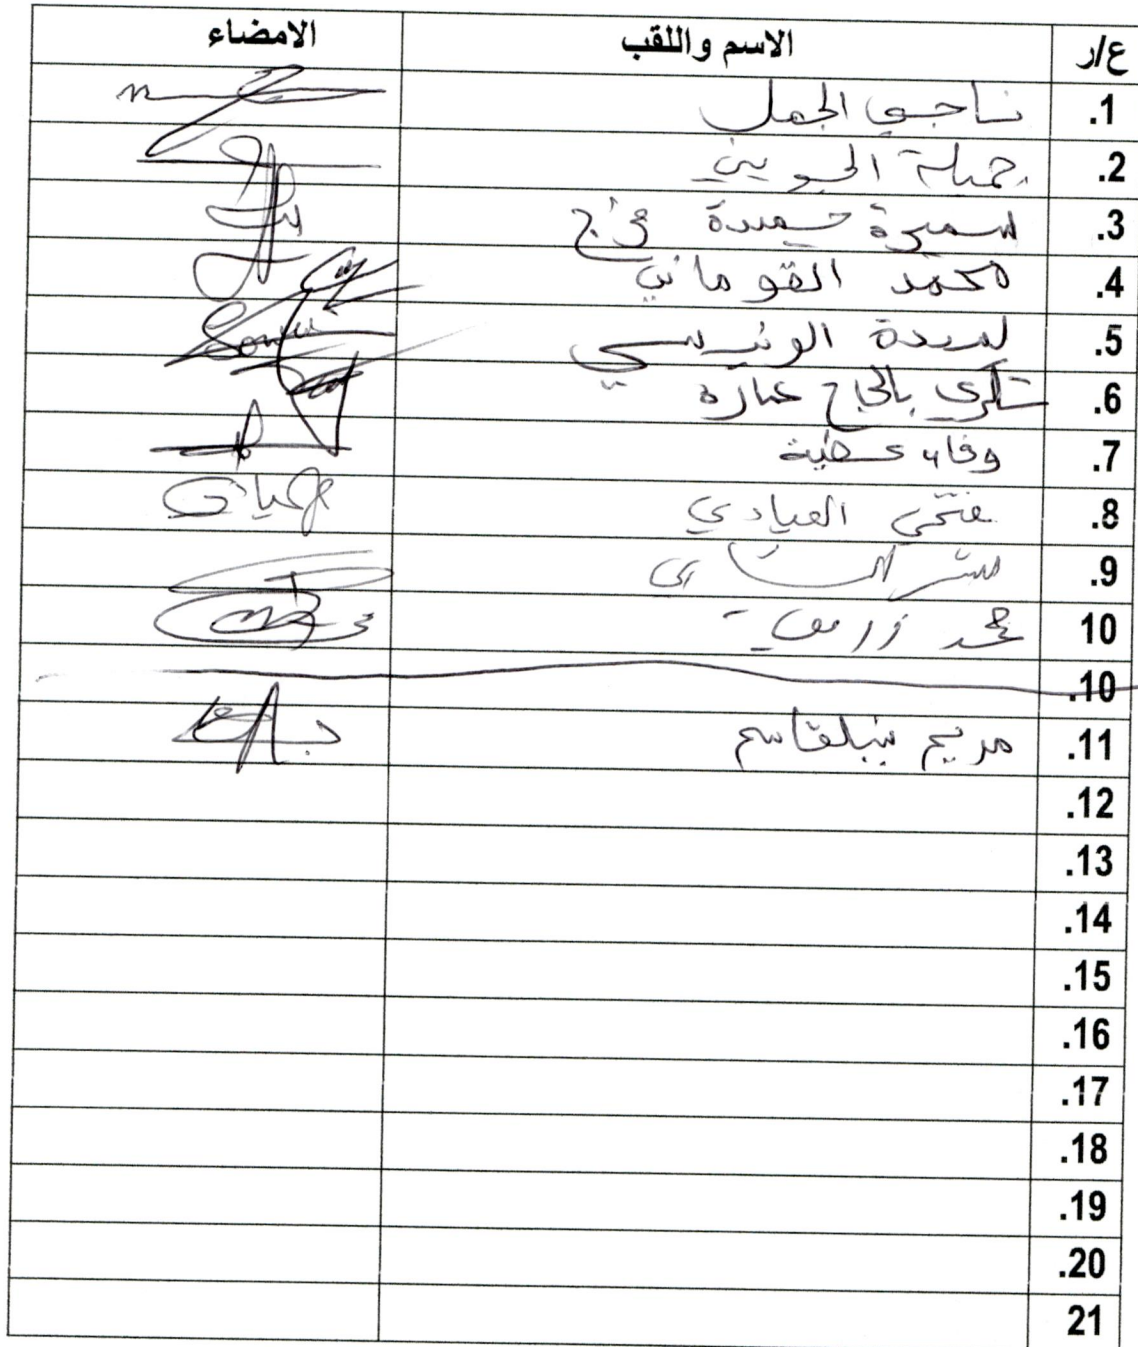 ع/ر الاسم واللقب الامضاء
1. ناجي الجمل
2. جميلة الجويني
3. سميرة حميدة فرج
4. محمد القوماني
5. فريدة الونيسي
6. شكري بالحاج عمارة
7. وفاء عطية
8. فتحي العيادي
9. بشر الشابي
10 محمد زريق
10.
11. مريم بنبلقاسم
12.
13.
14.
15.
16.
17.
18.
19.
20.
21